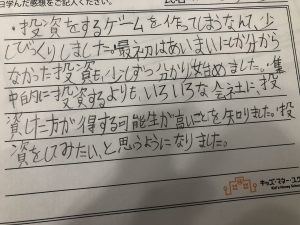 日学んだ感想をご記入ください。
・投資をするゲームを作ってしまうなんて、少
しびっくりしました。・最初はあいまいにしか分から
なかった投資も、少しずつ分かり始めました。・集
中的に投資するよりも、いろいろな会社に投
資した方が得する可能生が高いことを知りました。・投
資をしてみたい、と思うようになりました。
キッズ・マネー・スク